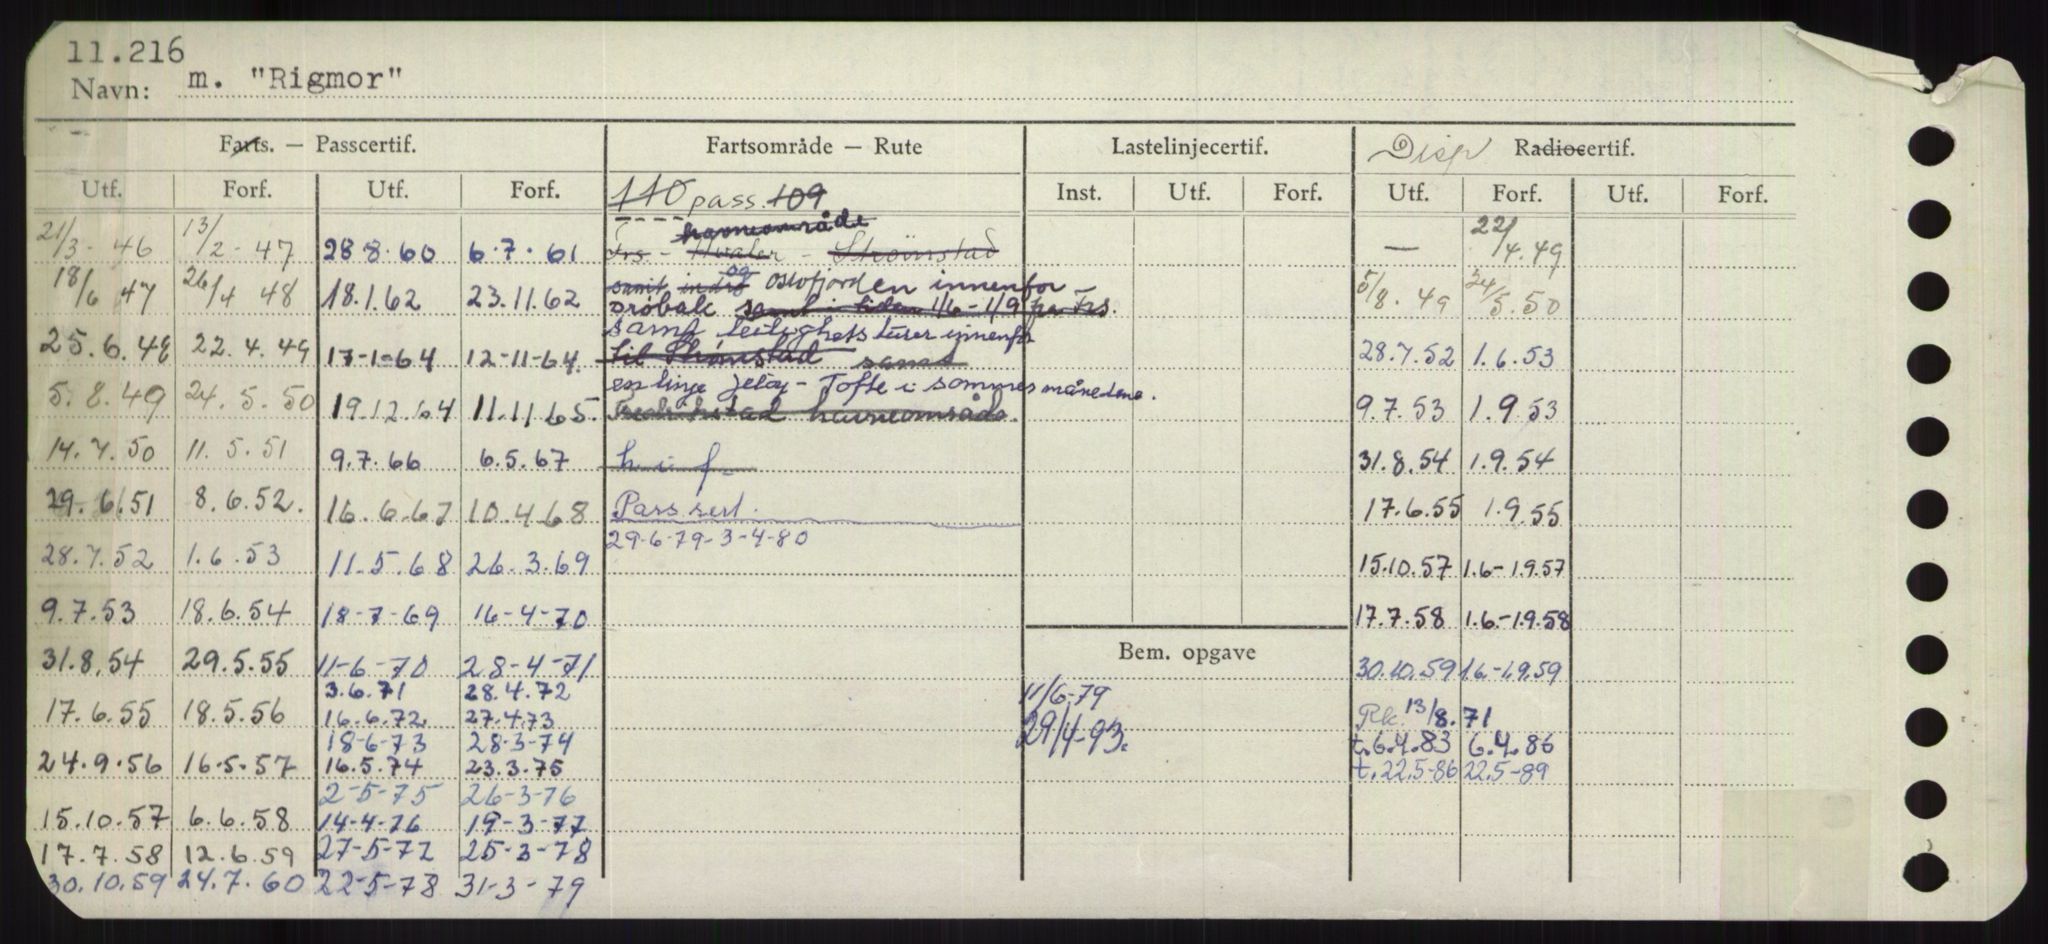 11.216
Navn: m. "Rigmor"
Farts. — Passcertif. Fartsområde — Rute Lastelinjecertif. Disp Radiocertif.
Utf. Forf. Utf. Forf. 110 pass. 109 Inst. Utf. Forf. Utf. Forf. Utf. Forf.
havneområde
21/3-46 13/2-47 28.8.60 6.7.61 Frs - Hvaler - Strømstad — 22/4.49
18/6 47 26/4 48 18.1.62 23.11.62 samt og Oslofjorden innenfor 5/8.49 24/5.50
Drøbak samt i tiden 1/6-1/9 fra Frs.
samt leilighets turer innenfor
25.6.48 22.4.49 17-1-64 12-11-64. til Strømstad samt 28.7.52 1.6.53
en linje Jeløy - Tofte i sommermånedene.
5.8.49 24.5.50 19.12.64 11.11.65. Fredrikstad havneområde. 9.7.53 1.9.53
14.7.50 11.5.51 9.7.66 6.5.67 h i f- 31.8.54 1.9.54
29.6.51 8.6.52. 16.6.67 10.4.68 Pass sert. 17.6.55 1.9.55
29-6-79-3-4-80
28.7.52 1.6.53 11.5.68 26.3.69 15.10.57 1.6-1.9.57
9.7.53 18.6.54 18-7-69 16-4-70 17.7.58 1.6.-1.9.58
31.8.54 29.5.55 11-6-70 28-4-71 Bem. opgave 30.10.59 1.6-1.9.59
3.6.71 28.4.72 11/6-79
17.6.55 18.5.56 16.6.72. 27.4.73 29/4-93. Rk. 13/8.71
18-6-73 28-3-74 t.6.4.83 6.4.86
24.9.56 16.5.57 16.5.74 23.3.75 t.22.5-86 22.5-89
2-5-75 26-3-76
15.10.57 6.6.58 14-4-76 19-3-77
17.7.58 12.6.59 27-5-77 25-3-78
30.10.59 24.7.60 22-5-78 31-3-79